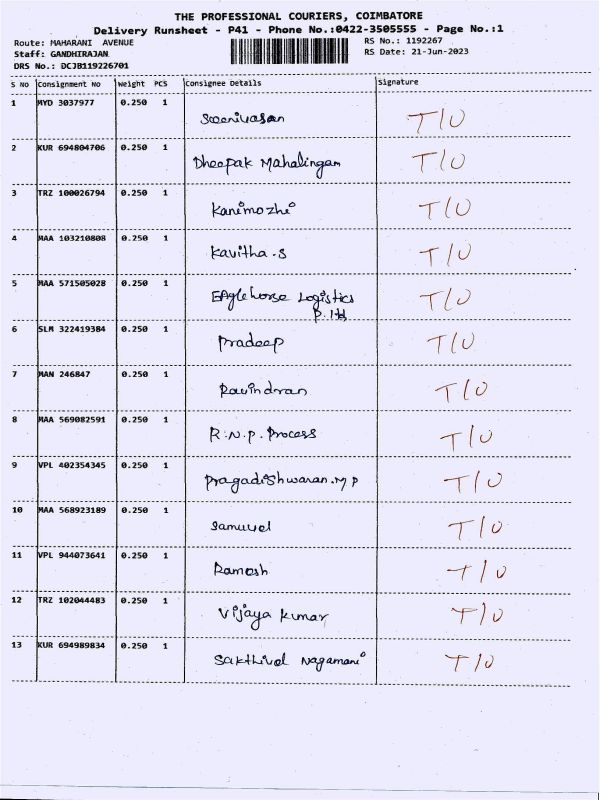 THE PROFESSIONAL COURIERS, COIMBATORE
Delivery Runsheet - P41 - Phone No.:0422-3505555 - Page No.:1
Route: MAHARANI AVENUE RS No.: 1192267
Staff: GANDHIRAJAN RS Date: 21-Jun-2023
DRS No.: DCJB119226701
S No Consignment No Weight PCS Consignee Details Signature
1 MYD 3037977 0.250 1 Sreenivasan T/O
2 KUR 694804706 0.250 1 Dheepak Mahalingam T/O
3 TRZ 100026794 0.250 1 Kanimozhi T/O
4 MAA 103210808 0.250 1 Kavitha.S T/O
5 MAA 571505028 0.250 1 EAglehorse Logistics T/O
P. ltd
6 SLM 322419384 0.250 1 Pradeep T/O
7 MAN 246847 0.250 1 Ravindran T/O
8 MAA 569082591 0.250 1 R.N.P. Process T/O
9 VPL 402354345 0.250 1 Pragadishwaran.M P T/O
10 MAA 568923189 0.250 1 Samuvel T/O
11 VPL 944073641 0.250 1 Ramesh T/O
12 TRZ 102044483 0.250 1 Vijaya Kumar T/O
13 KUR 694989834 0.250 1 Sakthivel Nagamani T/O